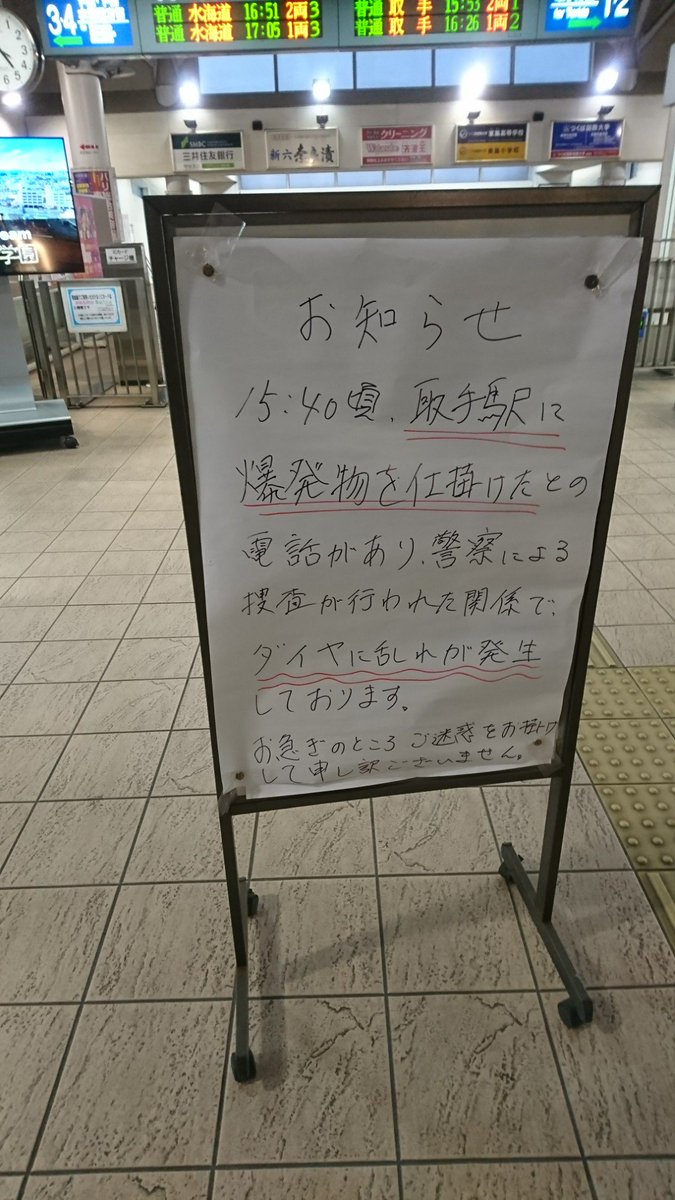 3·4
普通 水海道 16:51 2両 3
普通 水海道 17:05 1両 3
普通 取手 15:53 2両 1
普通 取手 16:26 1両 2
1·2
SMBC
三井住友銀行
新六奈良漬
クリーニング
eam
学園
チャージ機
お知らせ
15:40頃、取手駅に
爆発物を仕掛けたとの
電話があり、警察による
捜査が行われた関係で、
ダイヤに乱れが発生
しております。
お急ぎのところ ご迷惑をお掛け
して申し訳ございません。